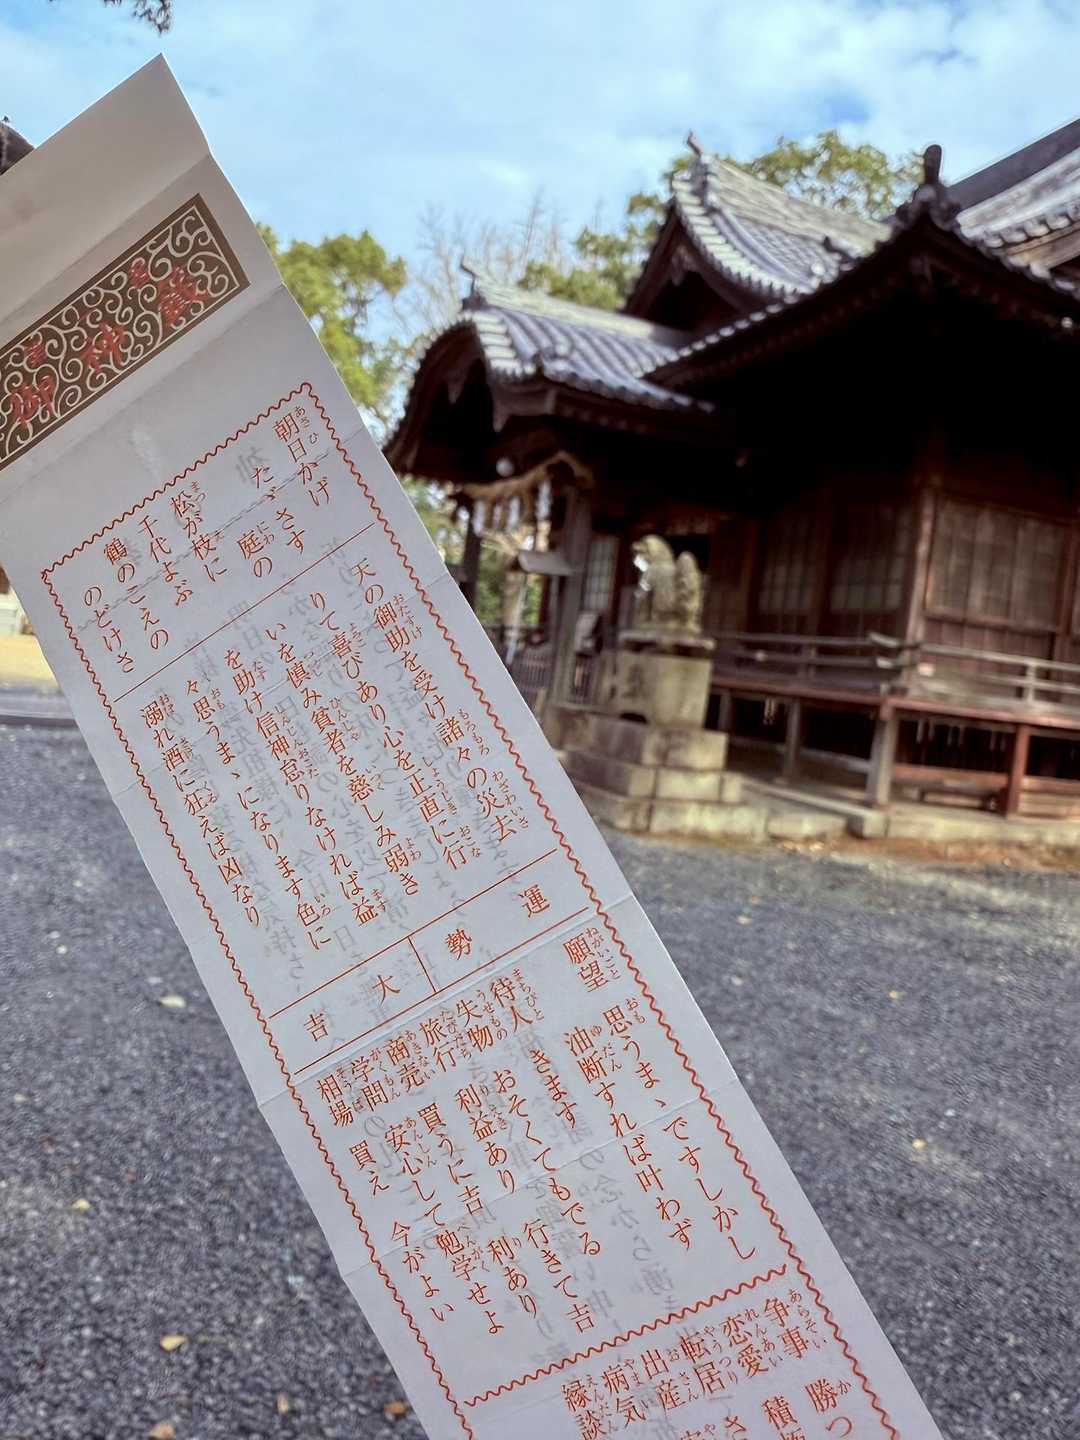 御神籤
朝日かげ
たゞさす
庭の
松が枝に
千代よぶ
鶴のこえの
のどけさ
天の御助を受け諸々の災去
りて喜びあり心を正直に行
いを慎み貧者を慈しみ弱き
を助け信神怠りなければ益
々思うまゝになります色に
溺れ酒に狂えば凶なり
運勢
大吉
願望 思うまゝですしかし
油断すれば叶わず
待人 きます
失物 おそくてもでる
旅行 利益あり 行きて吉
商売 買うに吉 利あり
学問 安心して勉学せよ
相場 買え 今がよい
争事 勝つ
恋愛 積
転居
出産
病気
縁談